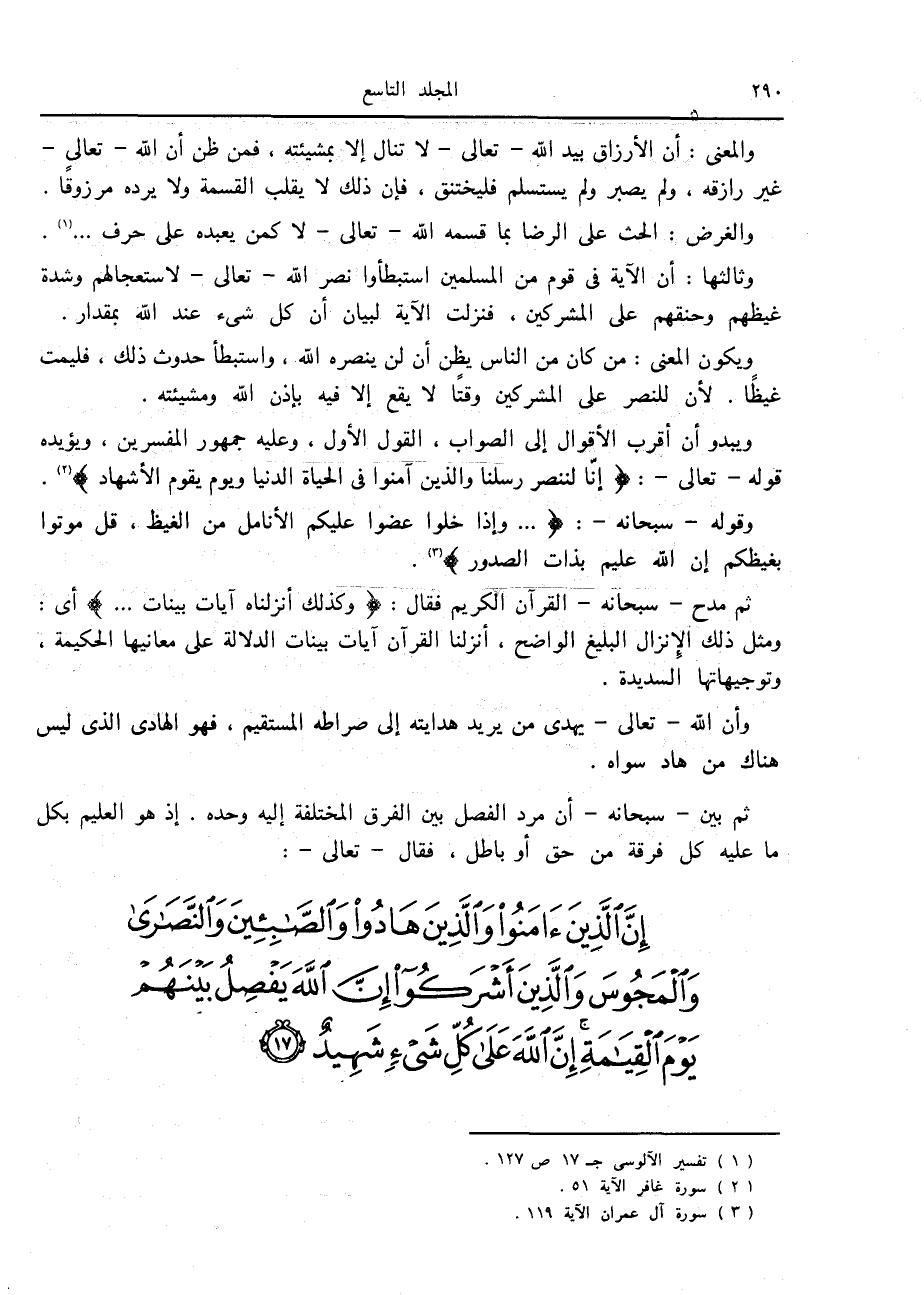 ٢٩٠ المجلد التاسع
والمعنى : أن الأرزاق بيد الله – تعالى – لا تنال إلا بمشيئته ، فمن ظن أن الله – تعالى –
غير رازقه ، ولم يصبر ولم يستسلم فليختنق ، فإن ذلك لا يقلب القسمة ولا يرده مرزوقًا .
والغرض : الحث على الرضا بما قسمه الله – تعالى – لا كمن يعبده على حرف ...(١) .
وثالثها : أن الآية فى قوم من المسلمين استبطأوا نصر الله – تعالى – لاستعجالهم وشدة
غيظهم وحنقهم على المشركين ، فنزلت الآية لبيان أن كل شىء عند الله بمقدار .
ويكون المعنى : من كان من الناس يظن أن لن ينصره الله ، واستبطأ حدوث ذلك ، فليمت
غيظًا . لأن للنصر على المشركين وقتًا لا يقع إلا فيه بإذن الله ومشيئته .
ويبدو أن أقرب الأقوال إلى الصواب ، القول الأول ، وعليه جمهور المفسرين ، ويؤيده
قوله – تعالى – : ﴿ إنّا لننصر رسلنا والذين آمنوا فى الحياة الدنيا ويوم يقوم الأشهاد ﴾(٢) .
وقوله – سبحانه – : ﴿ ... وإذا خلوا عضوا عليكم الأنامل من الغيظ ، قل موتوا
بغيظكم إن الله عليم بذات الصدور ﴾(٣) .
ثم مدح – سبحانه – القرآن الكريم فقال : ﴿ وكذلك أنزلناه آيات بينات ... ﴾ أى :
ومثل ذلك الإنزال البليغ الواضح ، أنزلنا القرآن آيات بينات الدلالة على معانيها الحكيمة ،
وتوجيهاتها السديدة .
وأن الله – تعالى – يهدى من يريد هدايته إلى صراطه المستقيم ، فهو الهادى الذى ليس
هناك من هاد سواه .
ثم بين – سبحانه – أن مرد الفصل بين الفرق المختلفة إليه وحده . إذ هو العليم بكل
ما عليه كل فرقة من حق أو باطل ، فقال – تعالى – :
إِنَّ ٱلَّذِينَ ءَامَنُوا۟ وَٱلَّذِينَ هَادُوا۟ وَٱلصَّٰبِـِٔينَ وَٱلنَّصَٰرَىٰ
وَٱلْمَجُوسَ وَٱلَّذِينَ أَشْرَكُوٓا۟ إِنَّ ٱللَّهَ يَفْصِلُ بَيْنَهُمْ
يَوْمَ ٱلْقِيَٰمَةِ ۚ إِنَّ ٱللَّهَ عَلَىٰ كُلِّ شَىْءٍ شَهِيدٌ ﴿١٧﴾
( ١ ) تفسير الآلوسى جـ ١٧ ص ١٢٧ .
( ٢ ) سورة غافر الآية ٥١ .
( ٣ ) سورة آل عمران الآية ١١٩ .